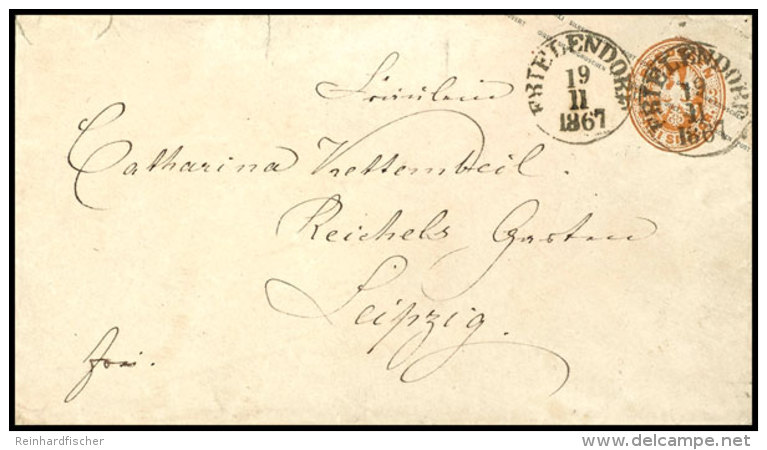 FRIELENDORF
19
11
1867
FRIELENDORF
19
11
1867
Fräulein
Catharina Kettembeil.
Reichels Garten
Leipzig.
frei.
Reinhardfischer
delcampe.net